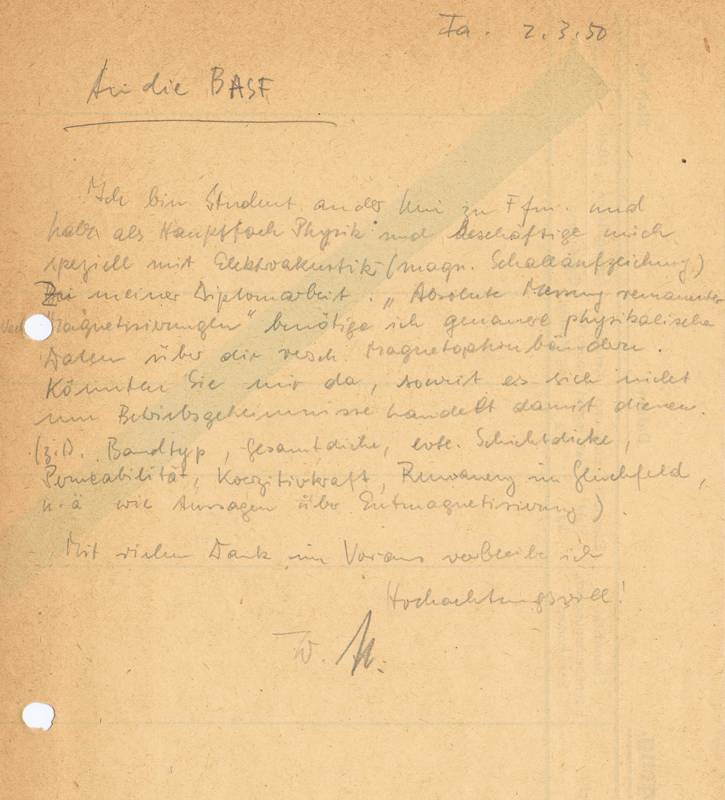 Fa. 2.3.50
An die BASF
Ich bin Student an der Uni zu Ffm. und
habe als Hauptfach Physik und beschäftige mich
speziell mit Elektroakustik (magn. Schallaufzeichnung)
Bei meiner Diplomarbeit. „Absolute Messung remanenter
Magnetisierungen" benötige ich genauere physikalische
Daten über die versch. Magnetophonbändern.
Könnten Sie mir da, soweit es sich nicht
um Betriebsgeheimnisse handelt damit dienen.
(z.B. Bandtyp, Gesamtdicke, evtl. Schichtdicke,
Permeabilität, Koerzitivkraft, Remanenz im Gleichfeld,
u.ä wie Aussagen über Entmagnetisierung)
Mit vielem Dank im Voraus verbleibe ich
Hochachtungsvoll!
W.